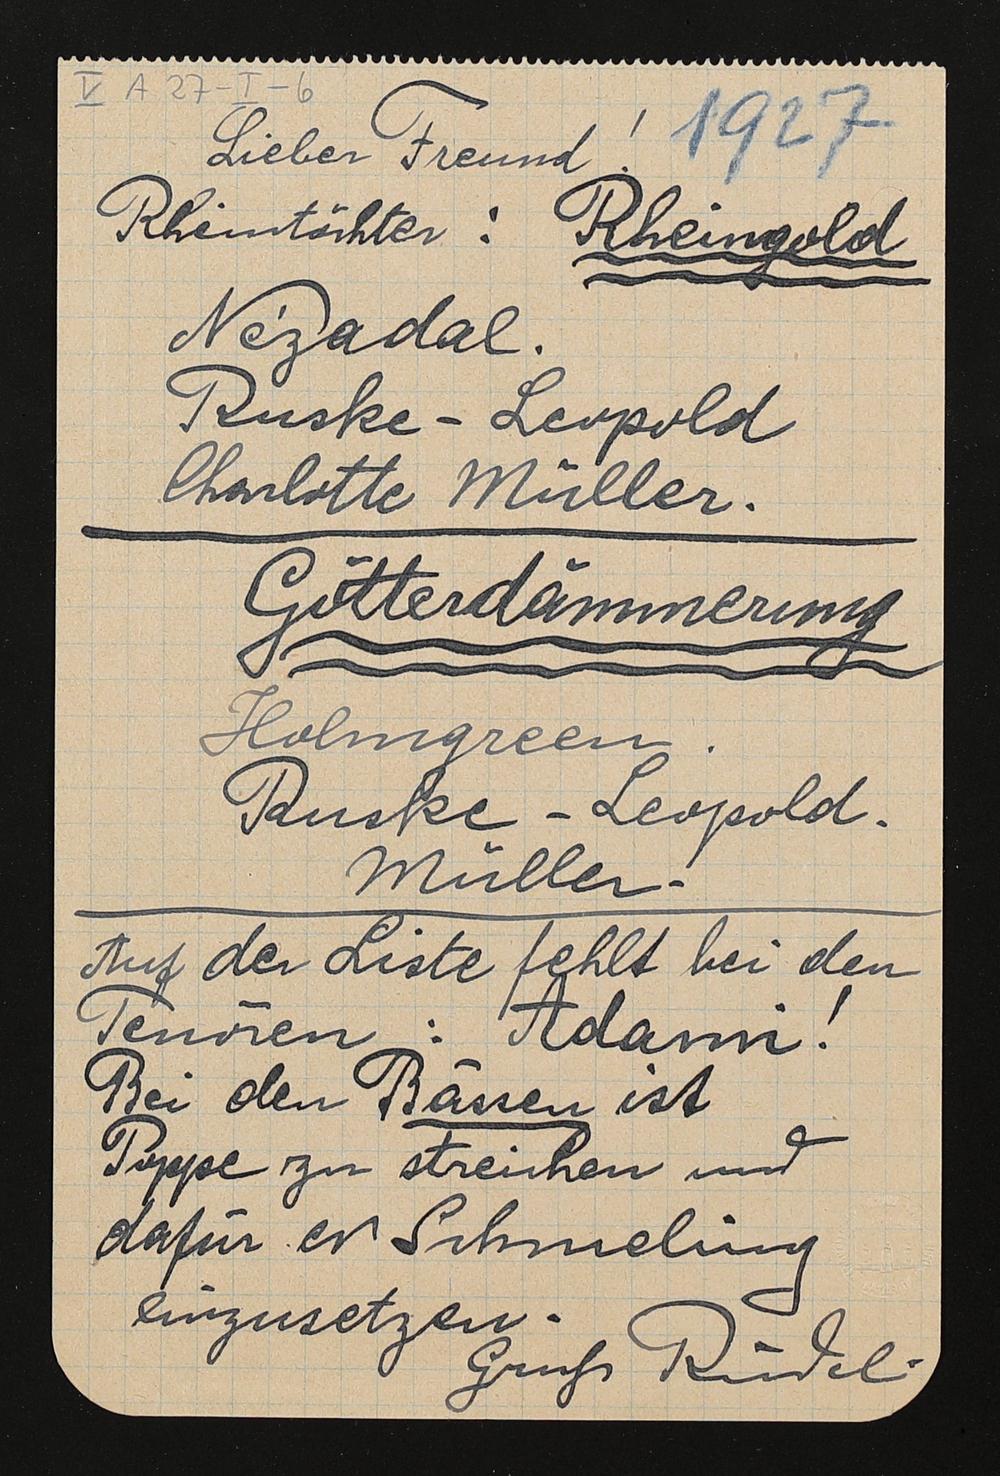 V A 27-I-6
1927
Lieber Freund!
Rheintöchter: Rheingold
Nézadal.
Ruske-Leopold
Charlotte Müller.
Götterdämmerung
Holmgreen.
Ruske-Leopold.
Müller.
Auf der Liste fehlt bei den
Tenören: Adami!
Bei den Bässen ist
Poppe zu streichen und
dafür ev Schmeling
einzusetzen.
Gruß Rüdel.